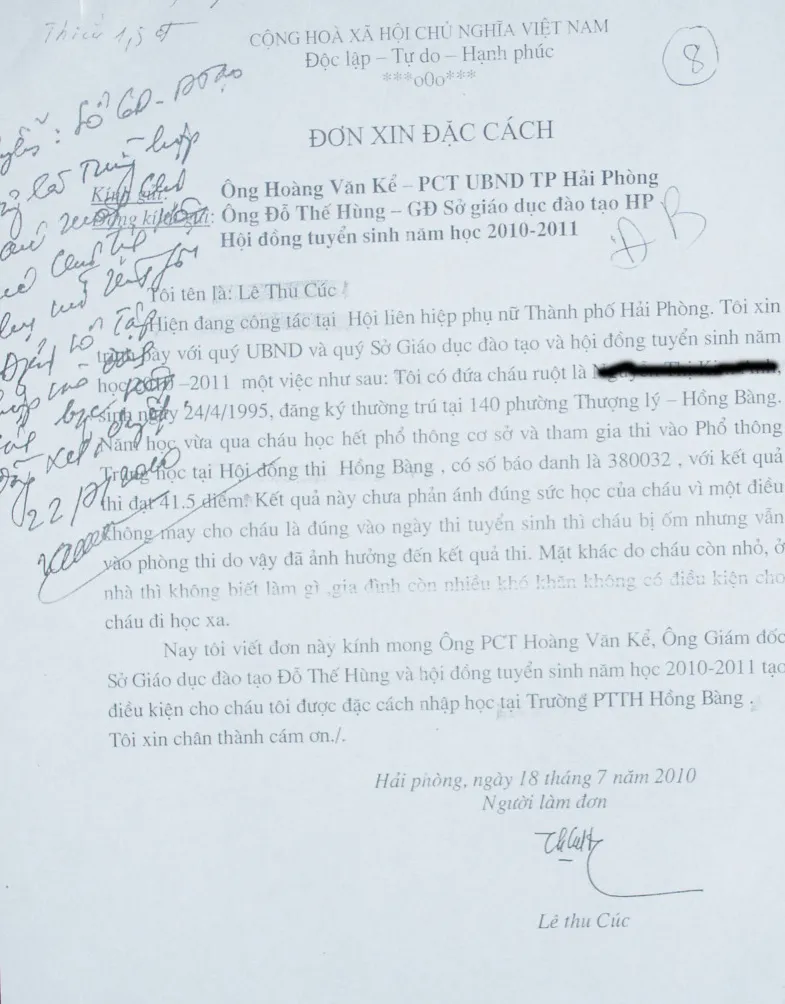 Thiếu 1,5 đ
CỘNG HOÀ XÃ HỘI CHỦ NGHĨA VIỆT NAM
Độc lập – Tự do – Hạnh phúc
***o0o***
8
ĐƠN XIN ĐẶC CÁCH
Kính gửi: Ông Hoàng Văn Kể – PCT UBND TP Hải Phòng
Đồng kính gửi: Ông Đỗ Thế Hùng – GĐ Sở giáo dục đào tạo HP
Hội đồng tuyển sinh năm học 2010-2011
Tôi tên là: Lê Thu Cúc
Hiện đang công tác tại Hội liên hiệp phụ nữ Thành phố Hải Phòng. Tôi xin
trình bày với quý UBND và quý Sở Giáo dục đào tạo và hội đồng tuyển sinh năm
học 2010 –2011 một việc như sau: Tôi có đứa cháu ruột là
sinh ngày 24/4/1995, đăng ký thường trú tại 140 phường Thượng lý – Hồng Bàng.
Năm học vừa qua cháu học hết phổ thông cơ sở và tham gia thi vào Phổ thông
Trung học tại Hội đồng thi Hồng Bàng , có số báo danh là 380032 , với kết quả
thi đạt 41.5 điểm. Kết quả này chưa phản ánh đúng sức học của cháu vì một điều
không may cho cháu là đúng vào ngày thi tuyển sinh thì cháu bị ốm nhưng vẫn
vào phòng thi do vậy đã ảnh hưởng đến kết quả thi. Mặt khác do cháu còn nhỏ, ở
nhà thì không biết làm gì ,gia đình còn nhiều khó khăn không có điều kiện cho
cháu đi học xa.
Nay tôi viết đơn này kính mong Ông PCT Hoàng Văn Kể, Ông Giám đốc
Sở Giáo dục đào tạo Đỗ Thế Hùng và hội đồng tuyển sinh năm học 2010-2011 tạo
điều kiện cho cháu tôi được đặc cách nhập học tại Trường PTTH Hồng Bàng .
Tôi xin chân thành cám ơn./.
Hải phòng, ngày 18 tháng 7 năm 2010
Người làm đơn
Lê thu Cúc